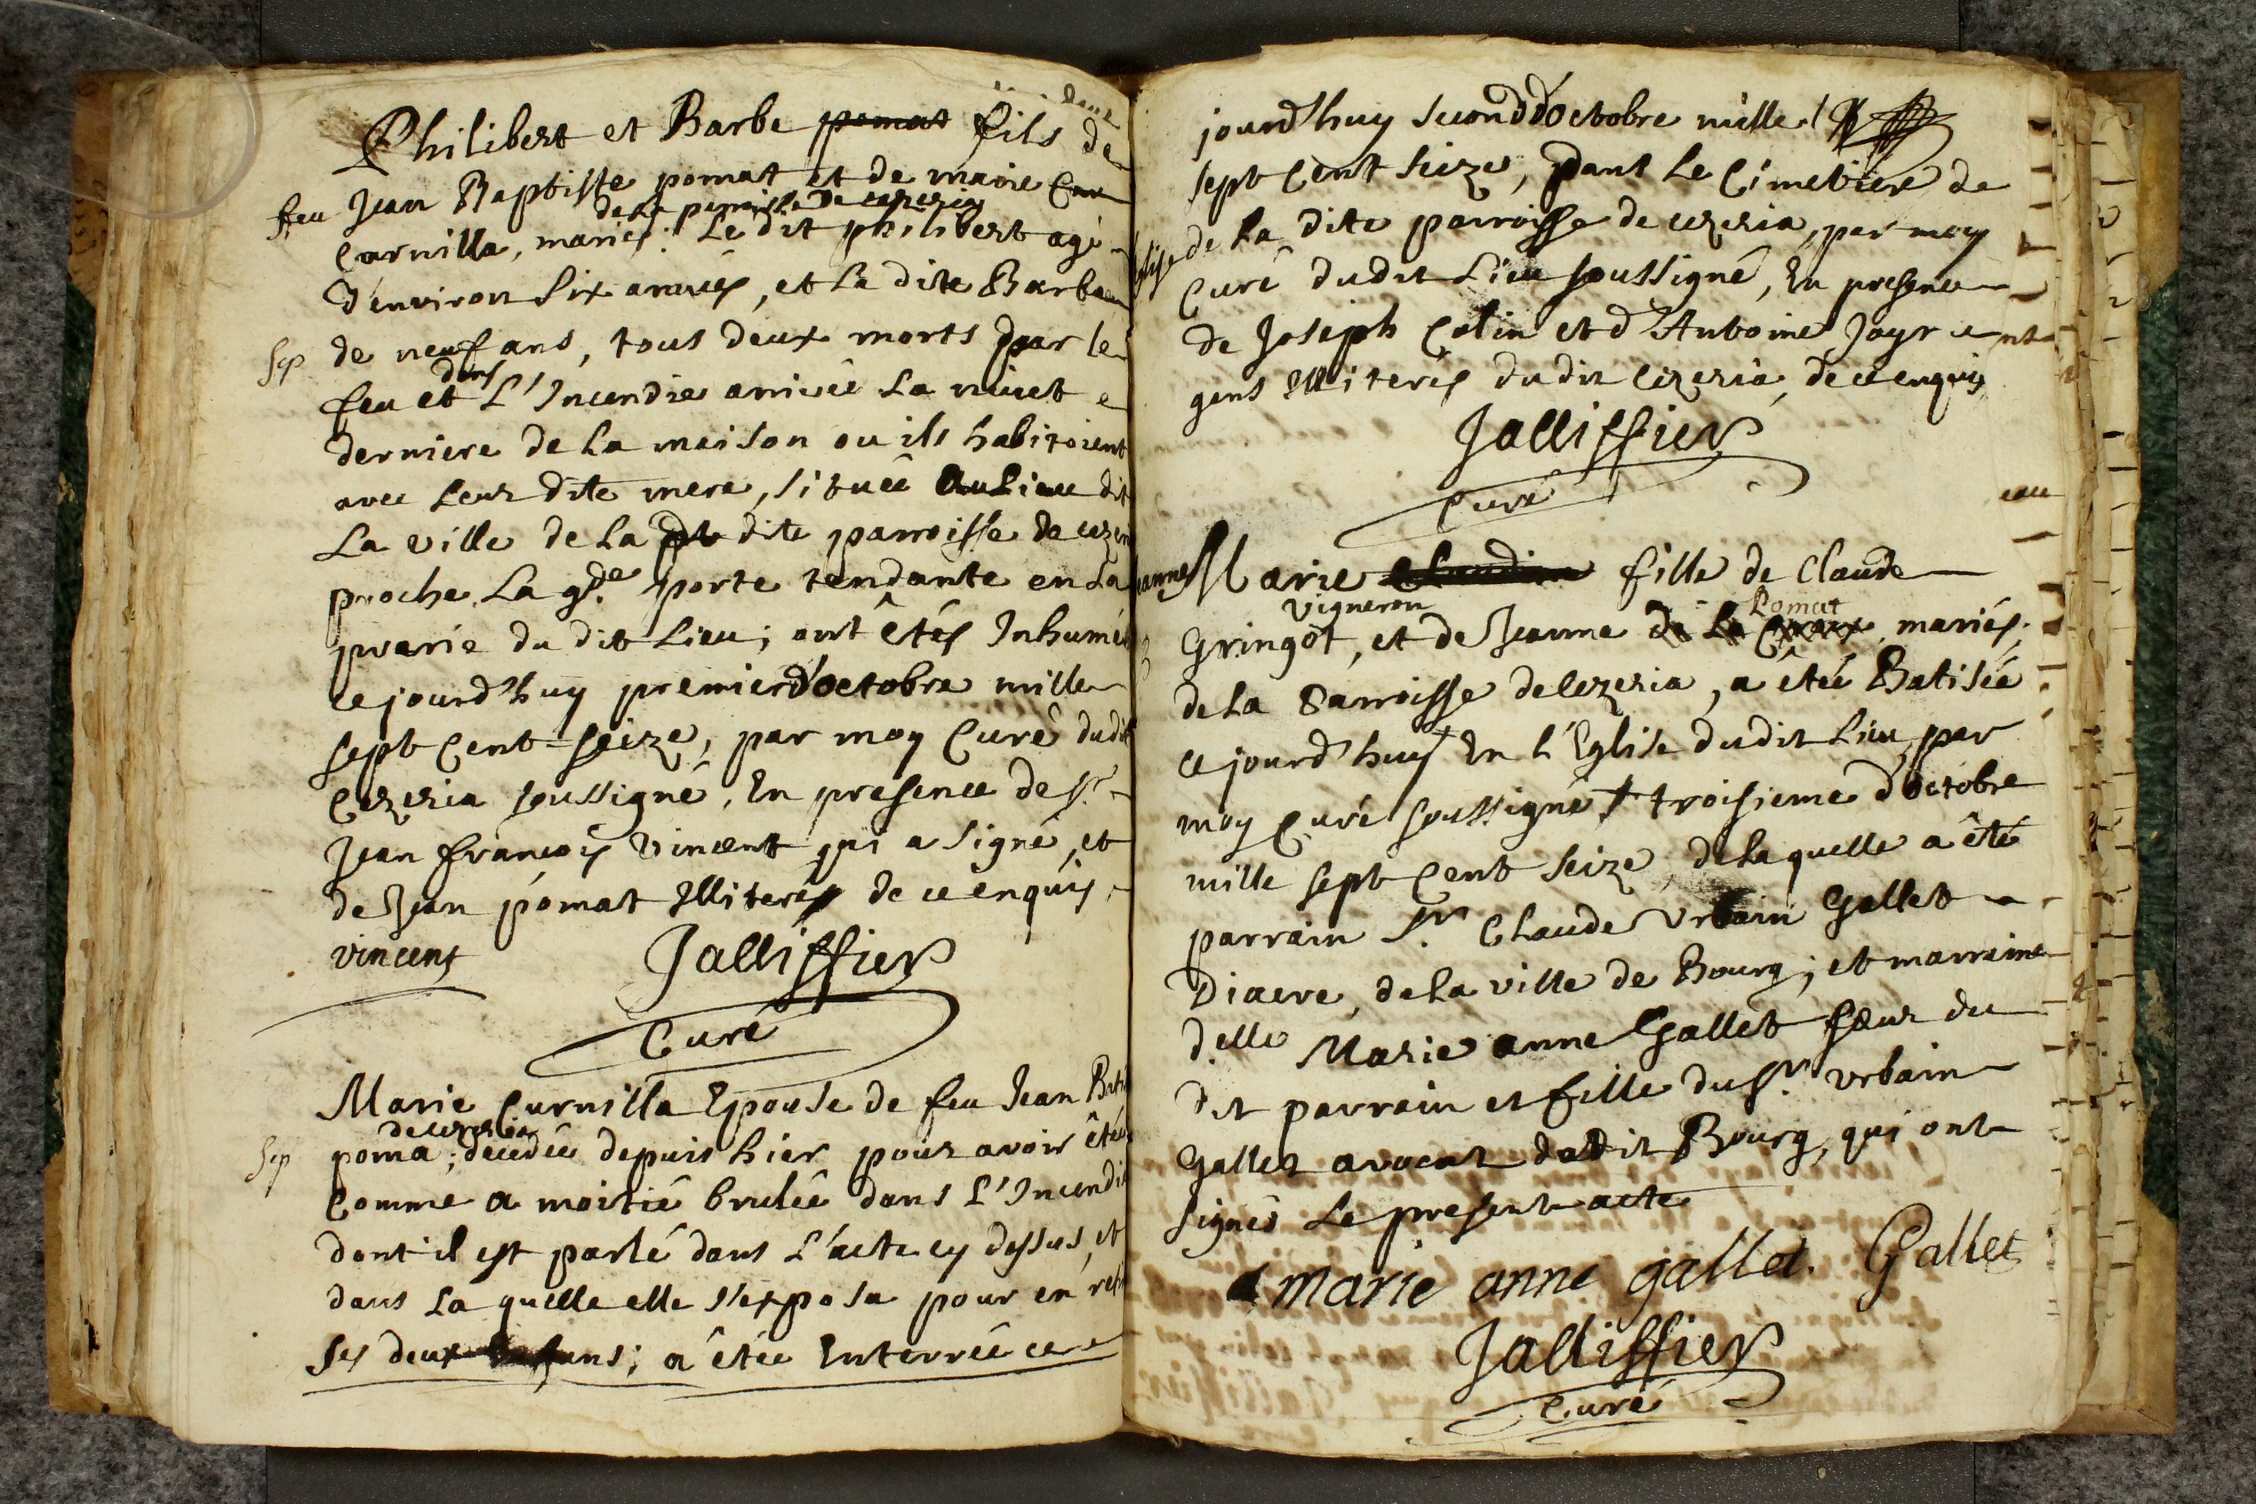 Philibert et Barbe pomat fils de
feu Jean Baptiste pomat et de marie Cur
de la parroisse de cezeria
Curnilla, mariés. Le dit philibert agé
d'environ six années, et la dite Barbe
Sep de neuf ans, tous deux morts par le
dans
feu et L'Incendie arrivée La nuict
derniere de la maison ou ils habitoient
avec leur dite mere, située au Lieu dit
La ville de la pt dite parroisse de cezeri
proche La gde porte tendante en La
prarie du dit Lieu; ont êtés Inhumé
ce jourd'huy premier d'octobre mille
sept cent seize, par moy Curé dudit
Cezeria soussigné, En presence de Sr
Jean françois vincent qui a signé, et
de Jean pomat Illiterés de ce enquis
vincent Jalliffier
Curé
Marie Curnilla Epouse de feu Jean Bati
de cezeria
Sep poma; decedée depuis hier pour avoir êtée
Comme a moitié brulée dans L'Incendi
dont il est parlé dans L'acte cy dessus, et
dans La quelle elle s'exposa pour en reti
Ses deux Enfans; a êtée Enterrée ce
jourd'huy second d'octobre mille
sept cent seize, dans Le Cimetiere de
Eglise de la dite parroisse de cezeria, par moy
Curé dudit Lieu soussigné, En presence
de Joseph Colin et d'Antoine Joyr
gens Illiterés dudit Cezeria, de ce enquis
Jalliffier
Curé
anne Marie Claudine fille de Claude
vigneron Pomat
Gringot, et de Jeanne de La Croix, mariés,
de la Parroisse de Cezeria, a êtée Batisée
ce jourd'huy En L'Eglise dudit Lieu, par
moy Curé soussigné troisieme d'octobre
mille sept cent seize, de la quelle a êté
parrain Sr Claude Urbain Gallet
Diacre, de la ville de Bourg; et marraine
delle Marie anne Gallet sœur du
dit parrain et fille du Sr Urbain
Gallet avocat dudit Bourg, qui ont
signés Le present acte
marie anne gallet. Gallet
Jalliffier
Curé